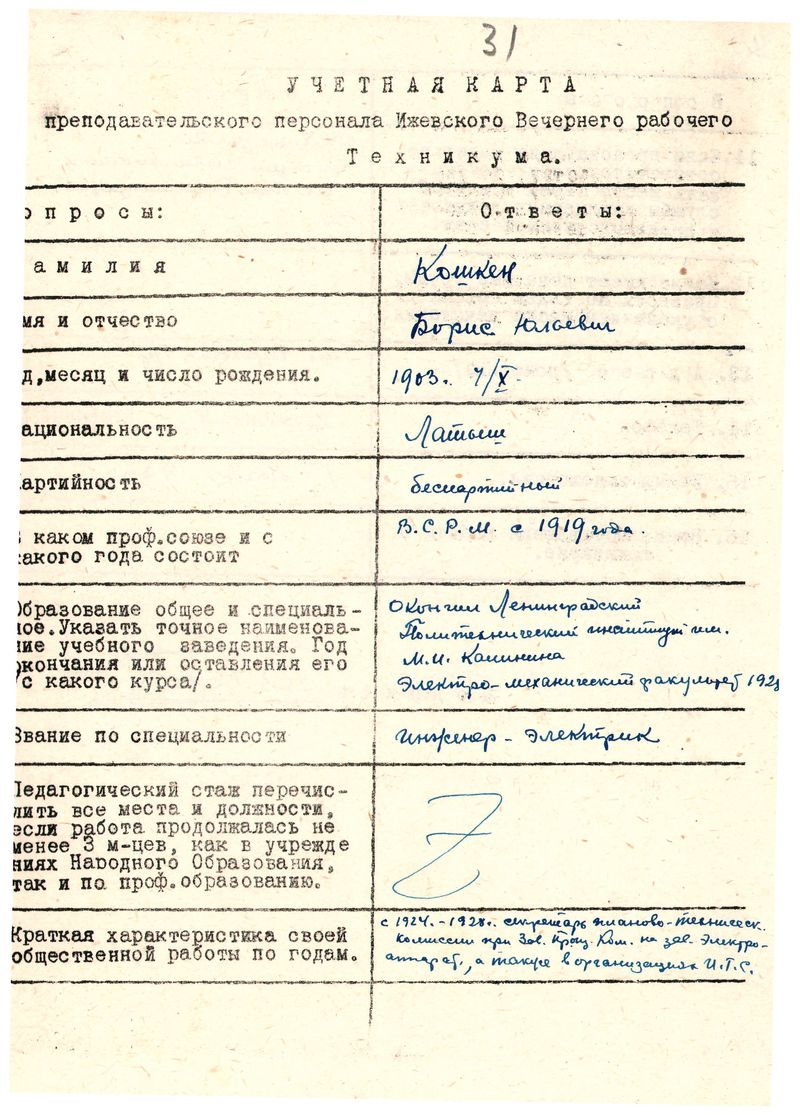 31
УЧЕТНАЯ КАРТА
преподавательского персонала Ижевского Вечернего рабочего
Техникума.
опросы:
Ответы:
амилия
Кошкен
мя и отчество
Борис
д,месяц и число рождения.
1903г. 7/X.
ациональность
Латыш
артийность
беспартийный
в каком проф.союзе и с
какого года состоит
В.С.Р.М. с 1919 года.
Образование общее и специаль-
ное.Указать точное наименова-
ние учебного заведения. Год
окончания или оставления его
/с какого курса/.
Окончил Ленинградский
Политехнический институт им.
М.И. Калинина
Электро-механический факультет 192
Звание по специальности
инженер-электрик
Педагогический стаж перечис-
лить все места и должности,
если работа продолжалась не
менее 3 м-цев, как в учрежде
ниях Народного Образования,
так и по проф.образованию.
Краткая характеристика своей
общественной работы по годам.
с 1924.-1928г. секретарь планово-техническ.
Комиссии при Зав. Ком. на зав. Электро-
аппарат, а также в организациях И.Т.С.